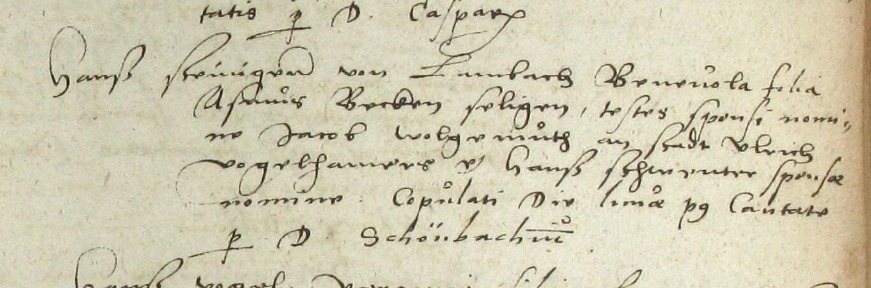 tatis p D. Casparem
Hanß von Lambach Benevola filia
Asmus Becken seligen, testes sponsi nomi-
ne Jacob Wolgemuth an stadt Ulrich
Vogelhamers et Hanß Schwenter sponsae
nomine. Copulati Die lunae pq Cantate
p D. Schönbachium
Hanß Vogel